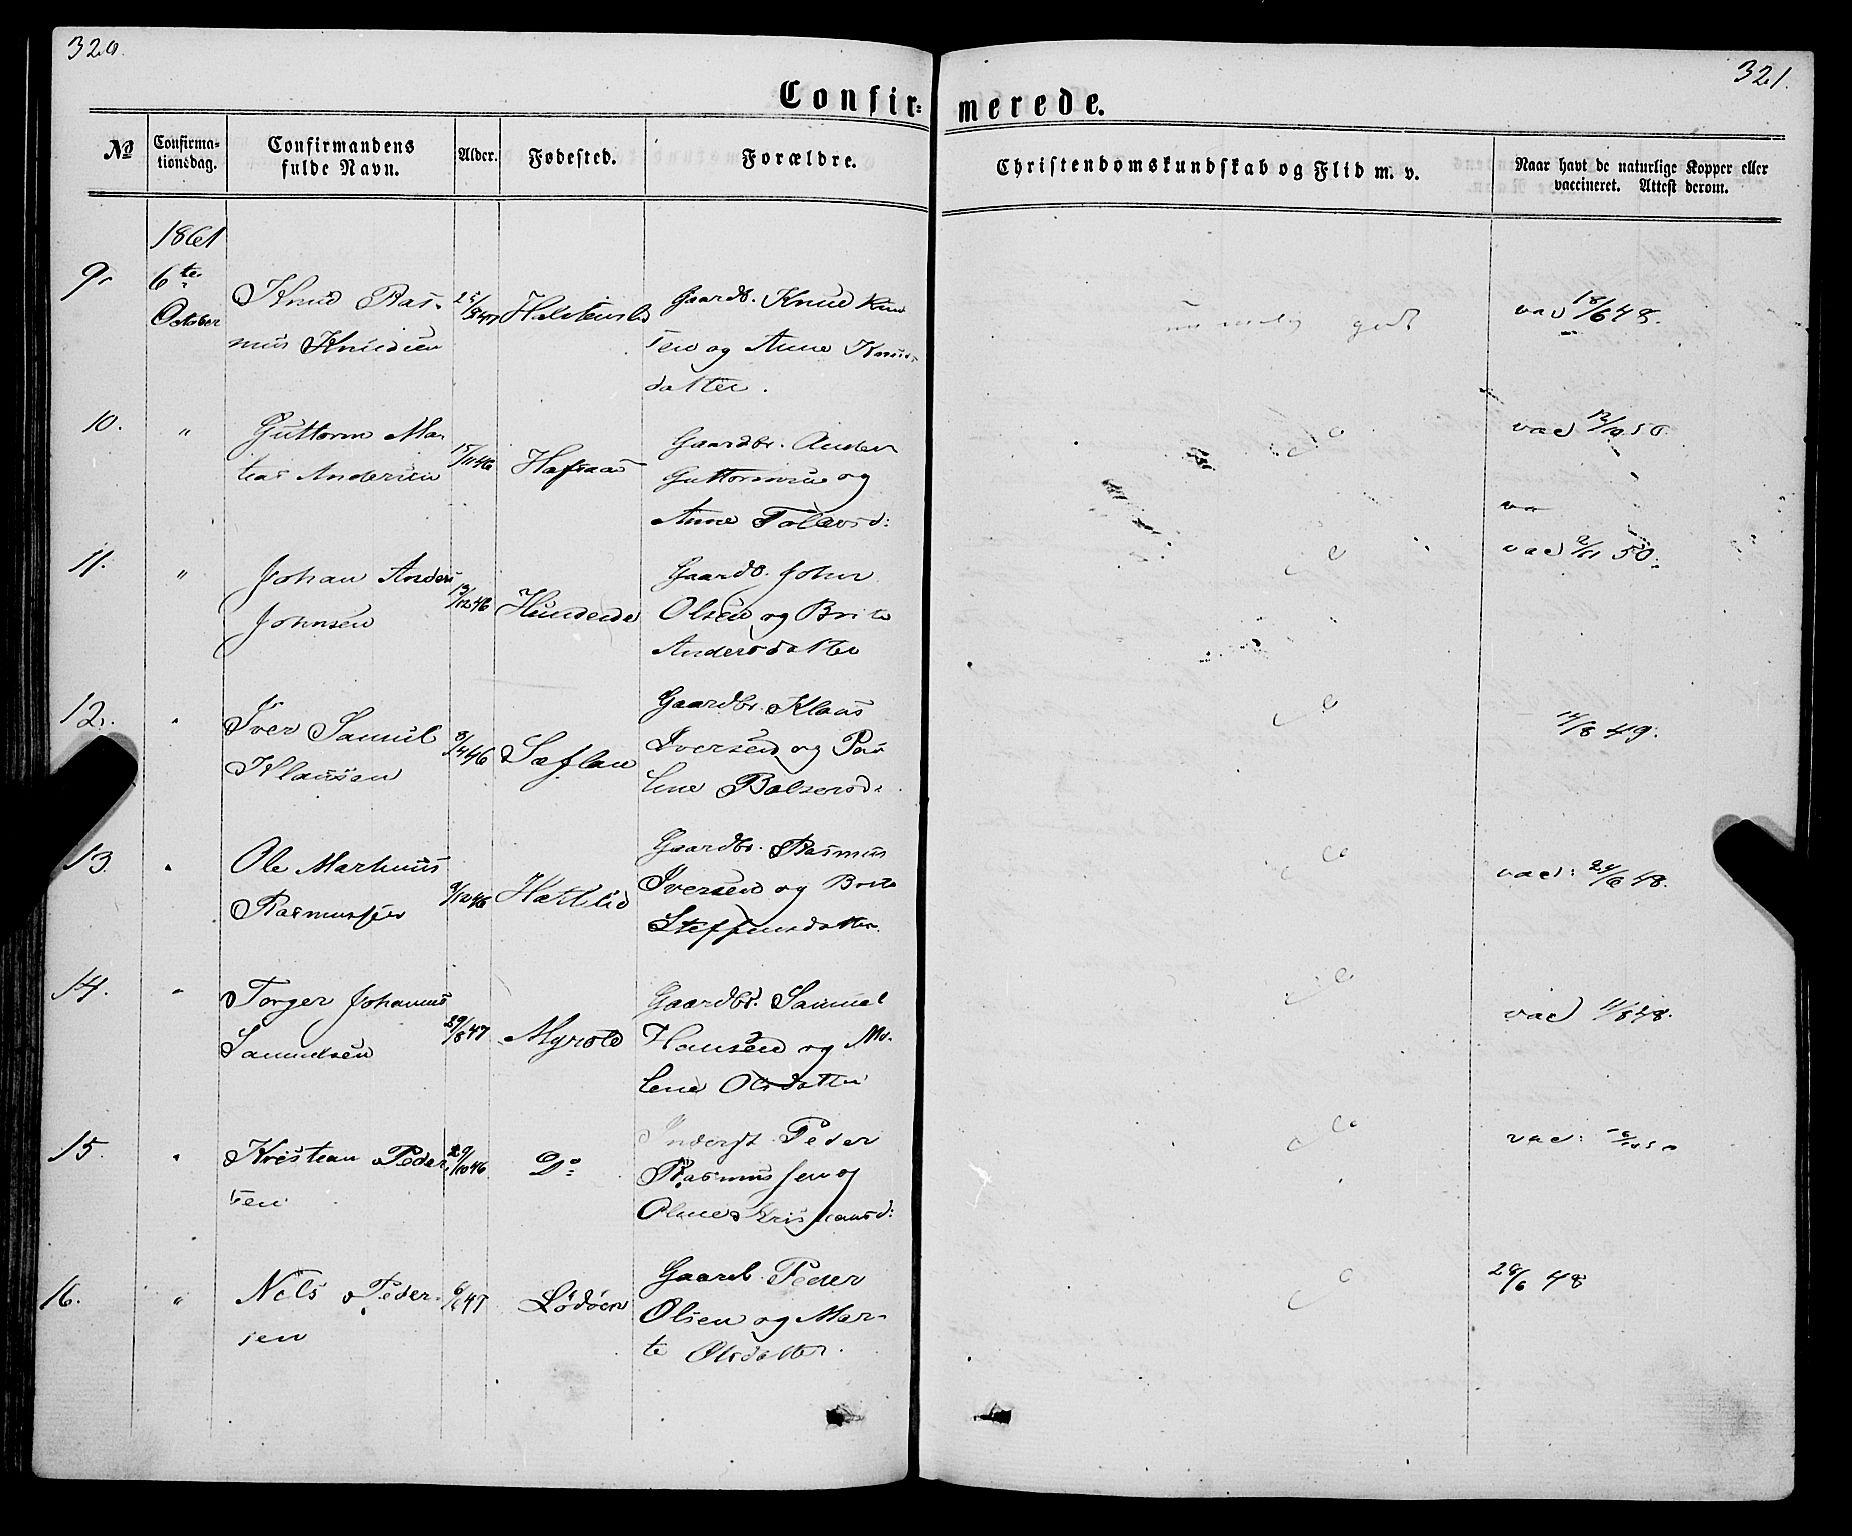 320.
321.
Confir-
merede.
No
Confirma-
tionsdag.
Confirmandens
fulde Navn.
Alder.
Fødested.
Forældre.
Christendomskundskab og Flid m. v.
Naar havt de naturlige Kopper eller
vaccineret. Attest derom.
1861
9.
6te
October
Knud Ras-
mus Knudsen
Gaardb. Knud Knud
sen og Anne Knuds
datter.
godt
vac 18/6 48.
10.
"
Guttorm Ma
tias Andersen
17/11 46
Hafsaas
Gaardbr. Anders
Guttormsen og
Anne Tolevsd:
vac 12/9 50.
va
11.
"
Johan Anders
Johnsen
19/12 46
Hundeide
Gaardb. John
Olsen og Brite
Andersdatter
vac 2/11 50.
12.
"
Iver Samuel
Klausen
Sæflan
Gaardbr. Klaus
Iversen og Pau
line Balsersd.
14/8 49.
13.
"
Ole Markuus
Rasmussen
9/12 46
Hattelid
Gaardbr. Rasmus
Iversen og Brite
Steffensdatter.
vac: 24/6 48.
14.
"
Torger Johannes
Samuelsen
29/8 47
Myrold
Gaardbr. Samuel
Hansen og Ma-
lene Olsdatter
vac 11/8 48.
15.
"
Kristian Peder-
sen
29/10 46
Do
Inderst Peder
Rasmussen og
Oline Kristiansd:
vac:
16.
"
Nils Peder-
sen
6/6 47
Lødøen
Gaardb. Peder
Olsen og Mar-
te Olsdatter.
28/6 48